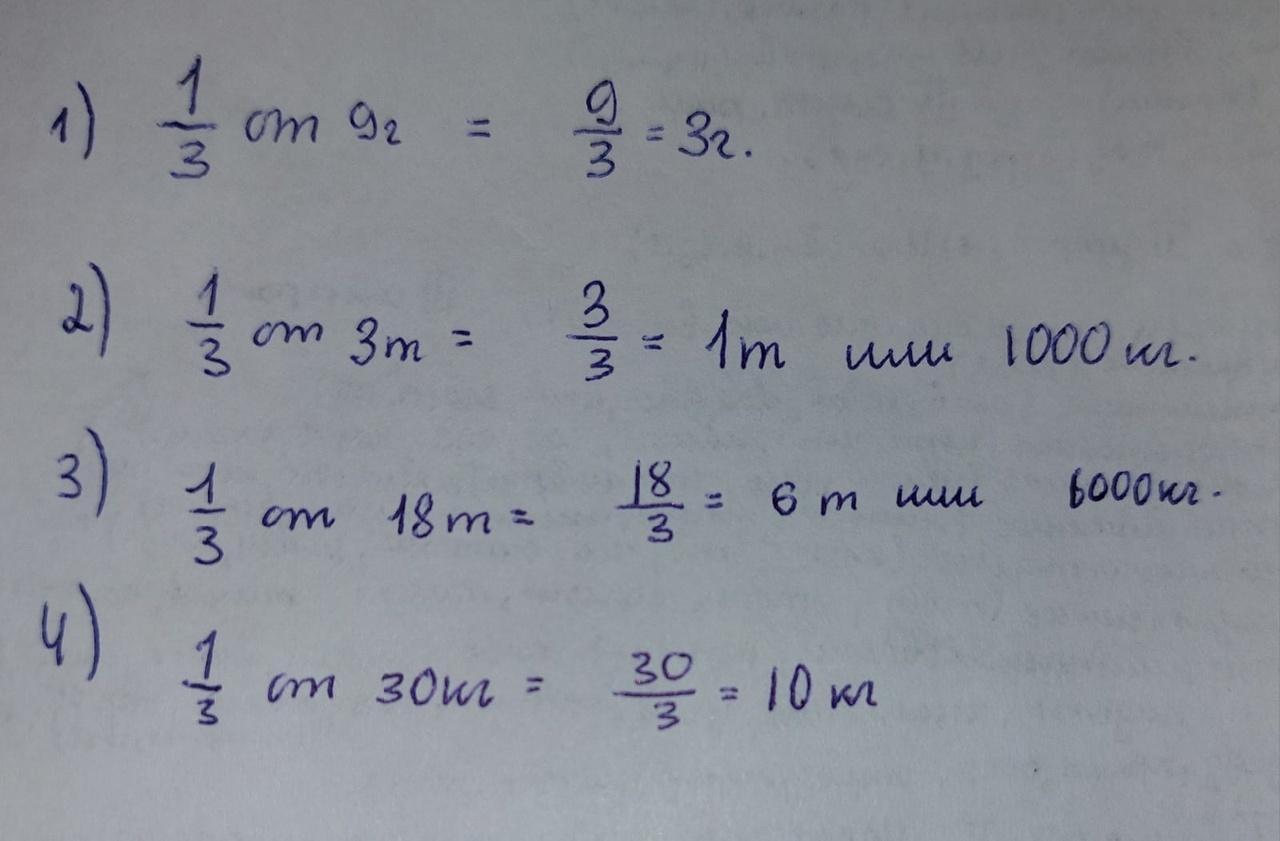 1) 1/3 от 9г = 9/3 = 3г.
2) 1/3 от 3т = 3/3 = 1т или 1000 кг.
3) 1/3 от 18т = 18/3 = 6 т или 6000кг.
4) 1/3 от 30кг = 30/3 = 10 кг